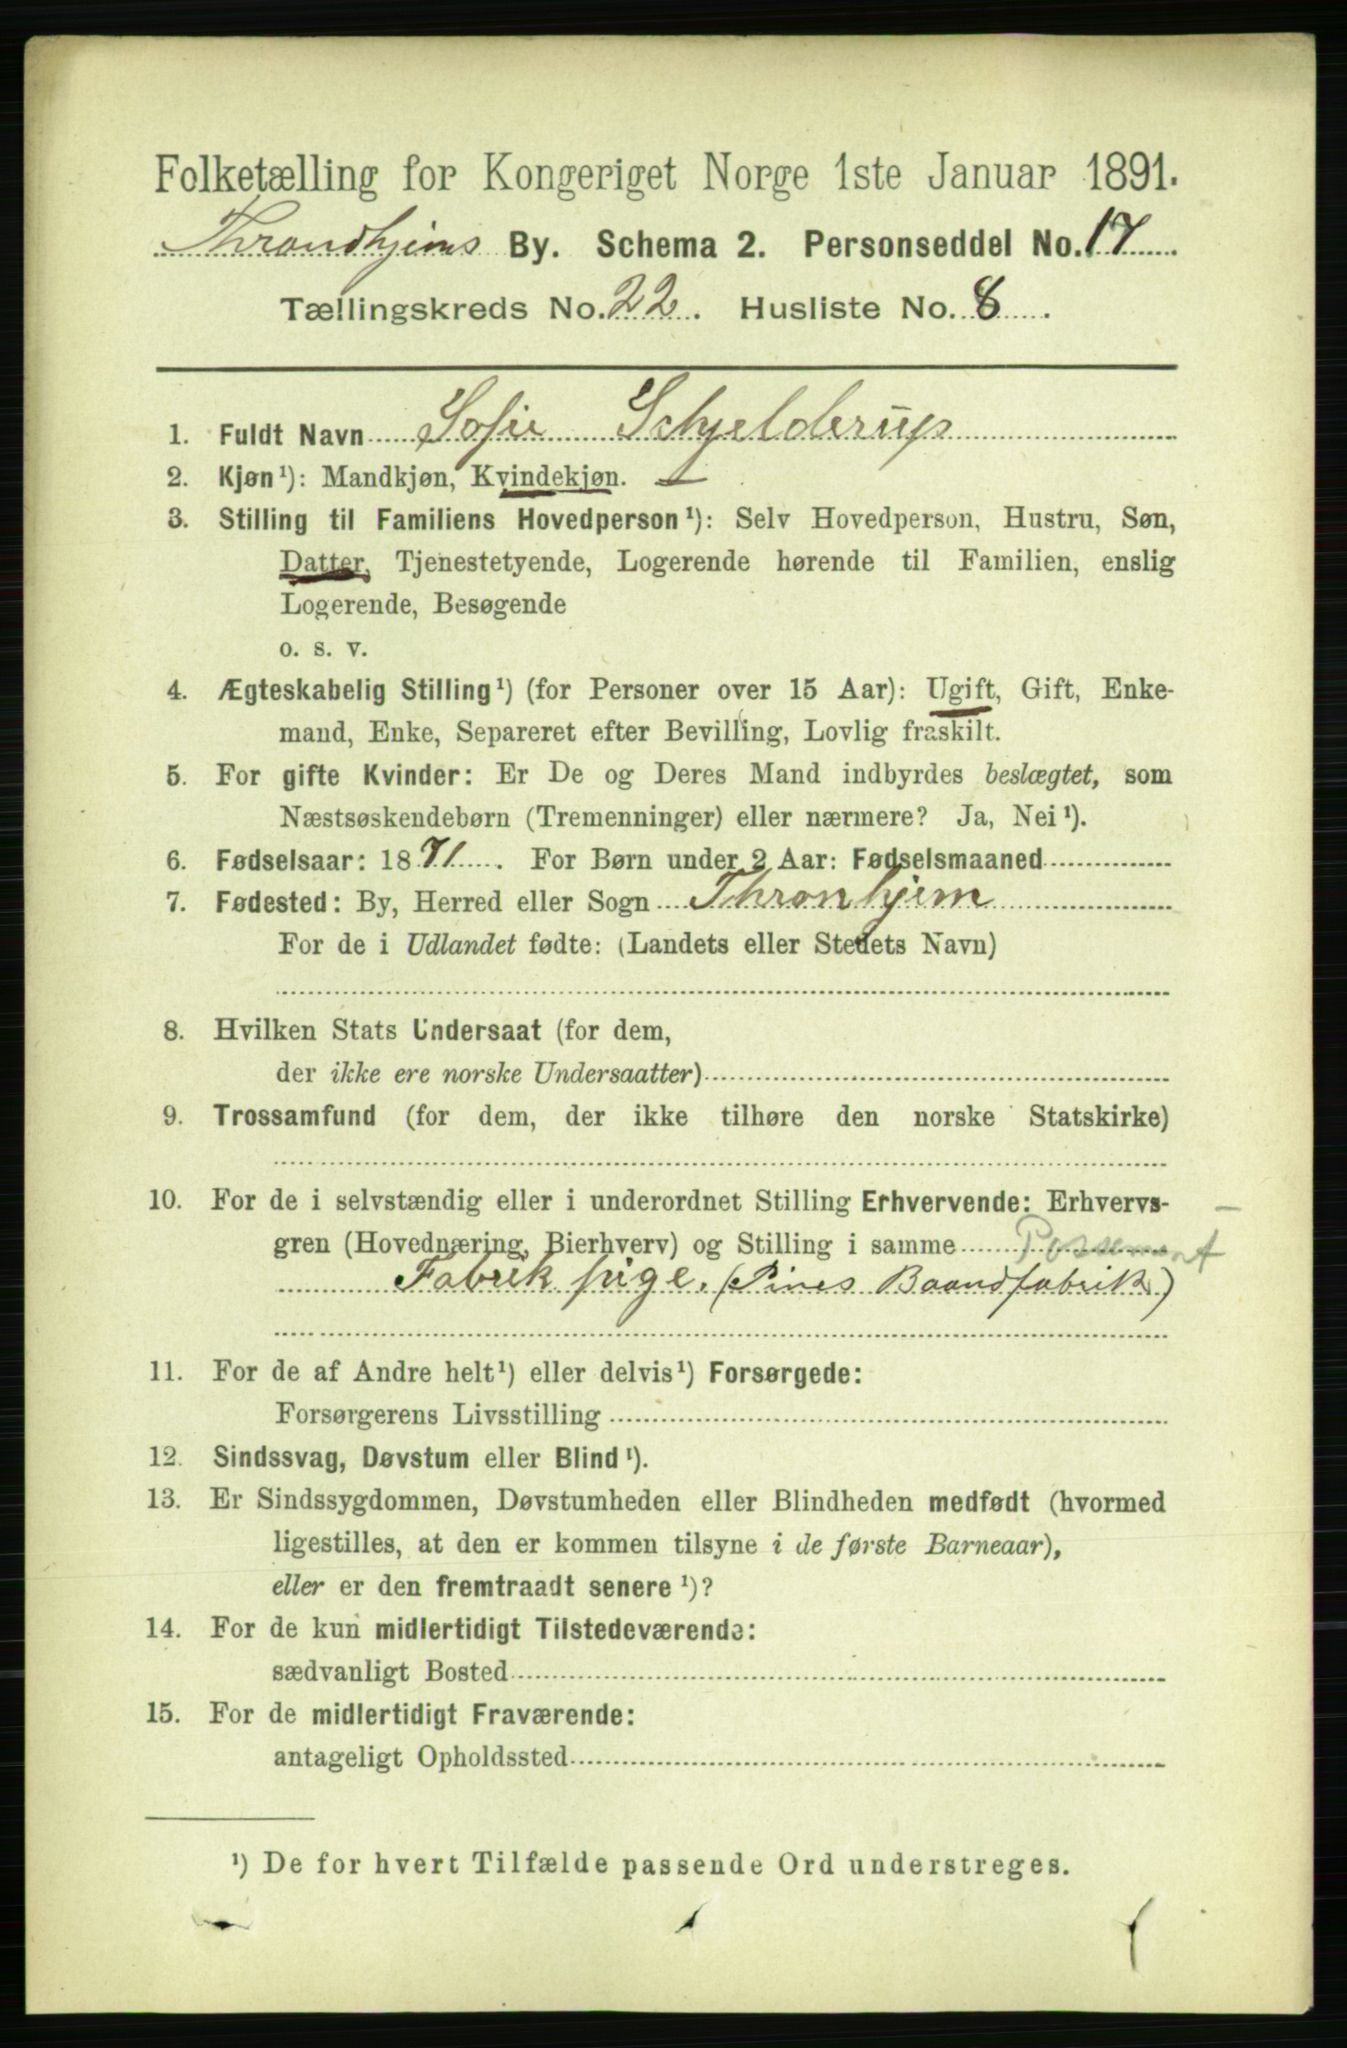 Folketælling for Kongeriget Norge 1ste Januar 1891.
Throndhjems By. Schema 2. Personseddel No. 17
Tællingskreds No. 22. Husliste No. 8.
1. Fuldt Navn Sofie Schjelderup
2. Kjøn¹): Mandkjøn, Kvindekjøn.
3. Stilling til Familiens Hovedperson¹): Selv Hovedperson, Hustru, Søn,
Datter, Tjenestetyende, Logerende hørende til Familien, enslig
Logerende, Besøgende
o. s. v.
4. Ægteskabelig Stilling¹) (for Personer over 15 Aar): Ugift, Gift, Enke-
mand, Enke, Separeret efter Bevilling, Lovlig fraskilt.
5. For gifte Kvinder: Er De og Deres Mand indbyrdes beslægtet, som
Næstsøskendebørn (Tremenninger) eller nærmere? Ja, Nei¹).
6. Fødselsaar: 1871. For Børn under 2 Aar: Fødselsmaaned
7. Fødested: By, Herred eller Sogn Thronhjem
For de i Udlandet fødte: (Landets eller Stedets Navn)
8. Hvilken Stats Undersaat (for dem,
der ikke ere norske Undersaatter)
9. Trossamfund (for dem, der ikke tilhøre den norske Statskirke)
10. For de i selvstændig eller i underordnet Stilling Erhvervende: Erhvervs-
gren (Hovednæring, Bierhverv) og Stilling i samme Possement-
Fabrik pige. (Pines Baandfabrik)
11. For de af Andre helt¹) eller delvis¹) Forsørgede:
Forsørgerens Livsstilling
12. Sindssvag, Døvstum eller Blind¹).
13. Er Sindssygdommen, Døvstumheden eller Blindheden medfødt (hvormed
ligestilles, at den er kommen tilsyne i de første Barneaar),
eller er den fremtraadt senere¹)?
14. For de kun midlertidigt Tilstedeværende:
sædvanligt Bosted
15. For de midlertidigt Fraværende:
antageligt Opholdssted
¹) De for hvert Tilfælde passende Ord understreges.